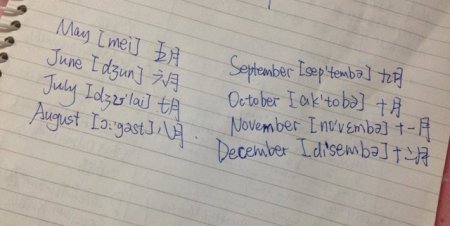 May [mei] 五月
June [dʒun] 六月
July [dʒʊ'lai] 七月
August [ɔ:'gəst] 八月
September [sep'tembə] 九月
October [ak'tobə] 十月
November [nʊ'vɛmbə] 十一月
December [di'sembə] 十二月